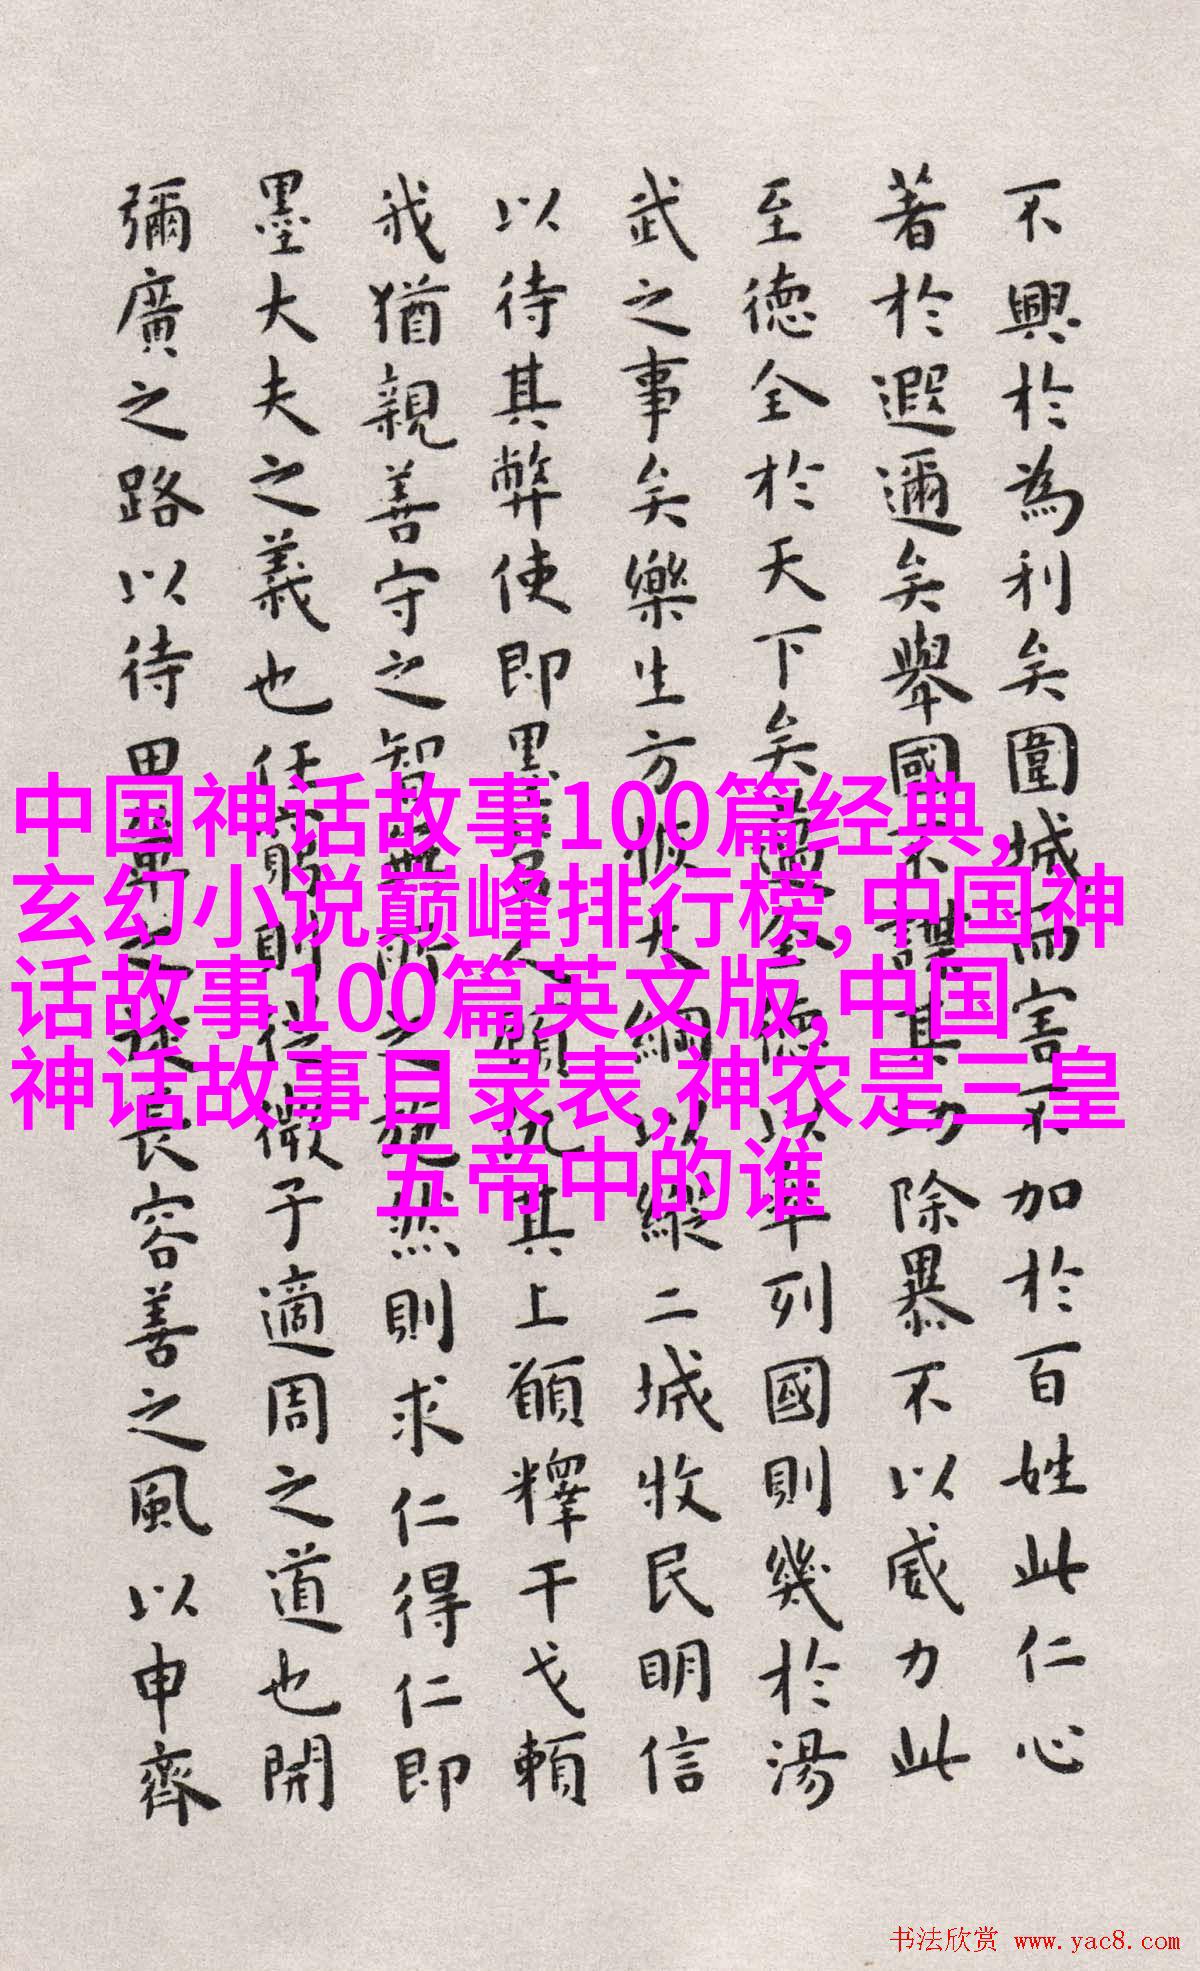 不興於為利矣圍城而害不加於百姓此仁心
著於遐邇矣舉國不謀其功除暴不以威力此
至德全於天下矣邁全德以率列國則幾於湯
武之事矣樂生方恢大綱以縱二城收民明信
以待其弊使即墨莒人顧仇其上願釋干戈賴
我猶親善守之智無所之施然則求仁得仁即
墨大夫之義也任窮則從微子適周之道也開
彌廣之路以待田單之徒長容善之風以申齊
中国神话故事100篇经典,
玄幻小说巅峰排行榜,中国神
话故事100篇英文版,中国
神话故事目录表,神农是三皇
五帝中的谁
书法欣赏 www.yac8.com